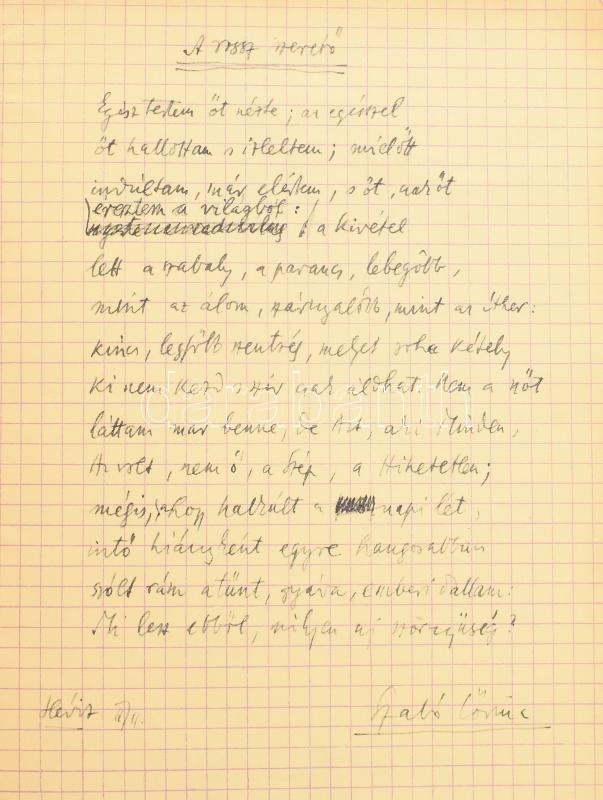 A rossz szerető
Egész testem őt nézte; az egésszel
őt hallottam s ízleltem; mielőtt
indúltam, már elértem, s őt, csak őt
éreztem a világból: a kivétel
lett a szabály, a parancs, lebegőbb,
mint az álom, szárnyalóbb, mint az éther:
kincs, legfőbb szentség, melyet soha kétely
ki nem kezd s szív csak áldhat. Nem a nőt
láttam már benne, de Azt, aki Minden,
Az volt, nem ő, a Szép, a Hihetetlen;
mégis, ahogy halkúlt a napi lét,
intő hiányként egyre hangosabban
szólt rám a tűnt, gyáva, emberi dallam:
Mi lesz ebből, milyen uj szörnyüség?
Hévíz
Szabó Lőrinc
darabanth